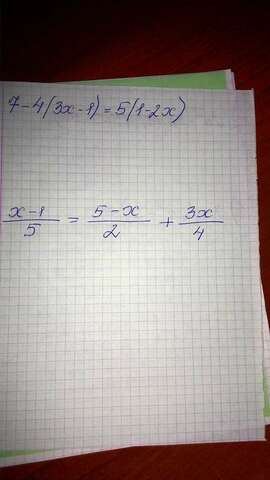 7-4(3x-1)=5(1-2x)
x-1/5 = 5-x/2 + 3x/4